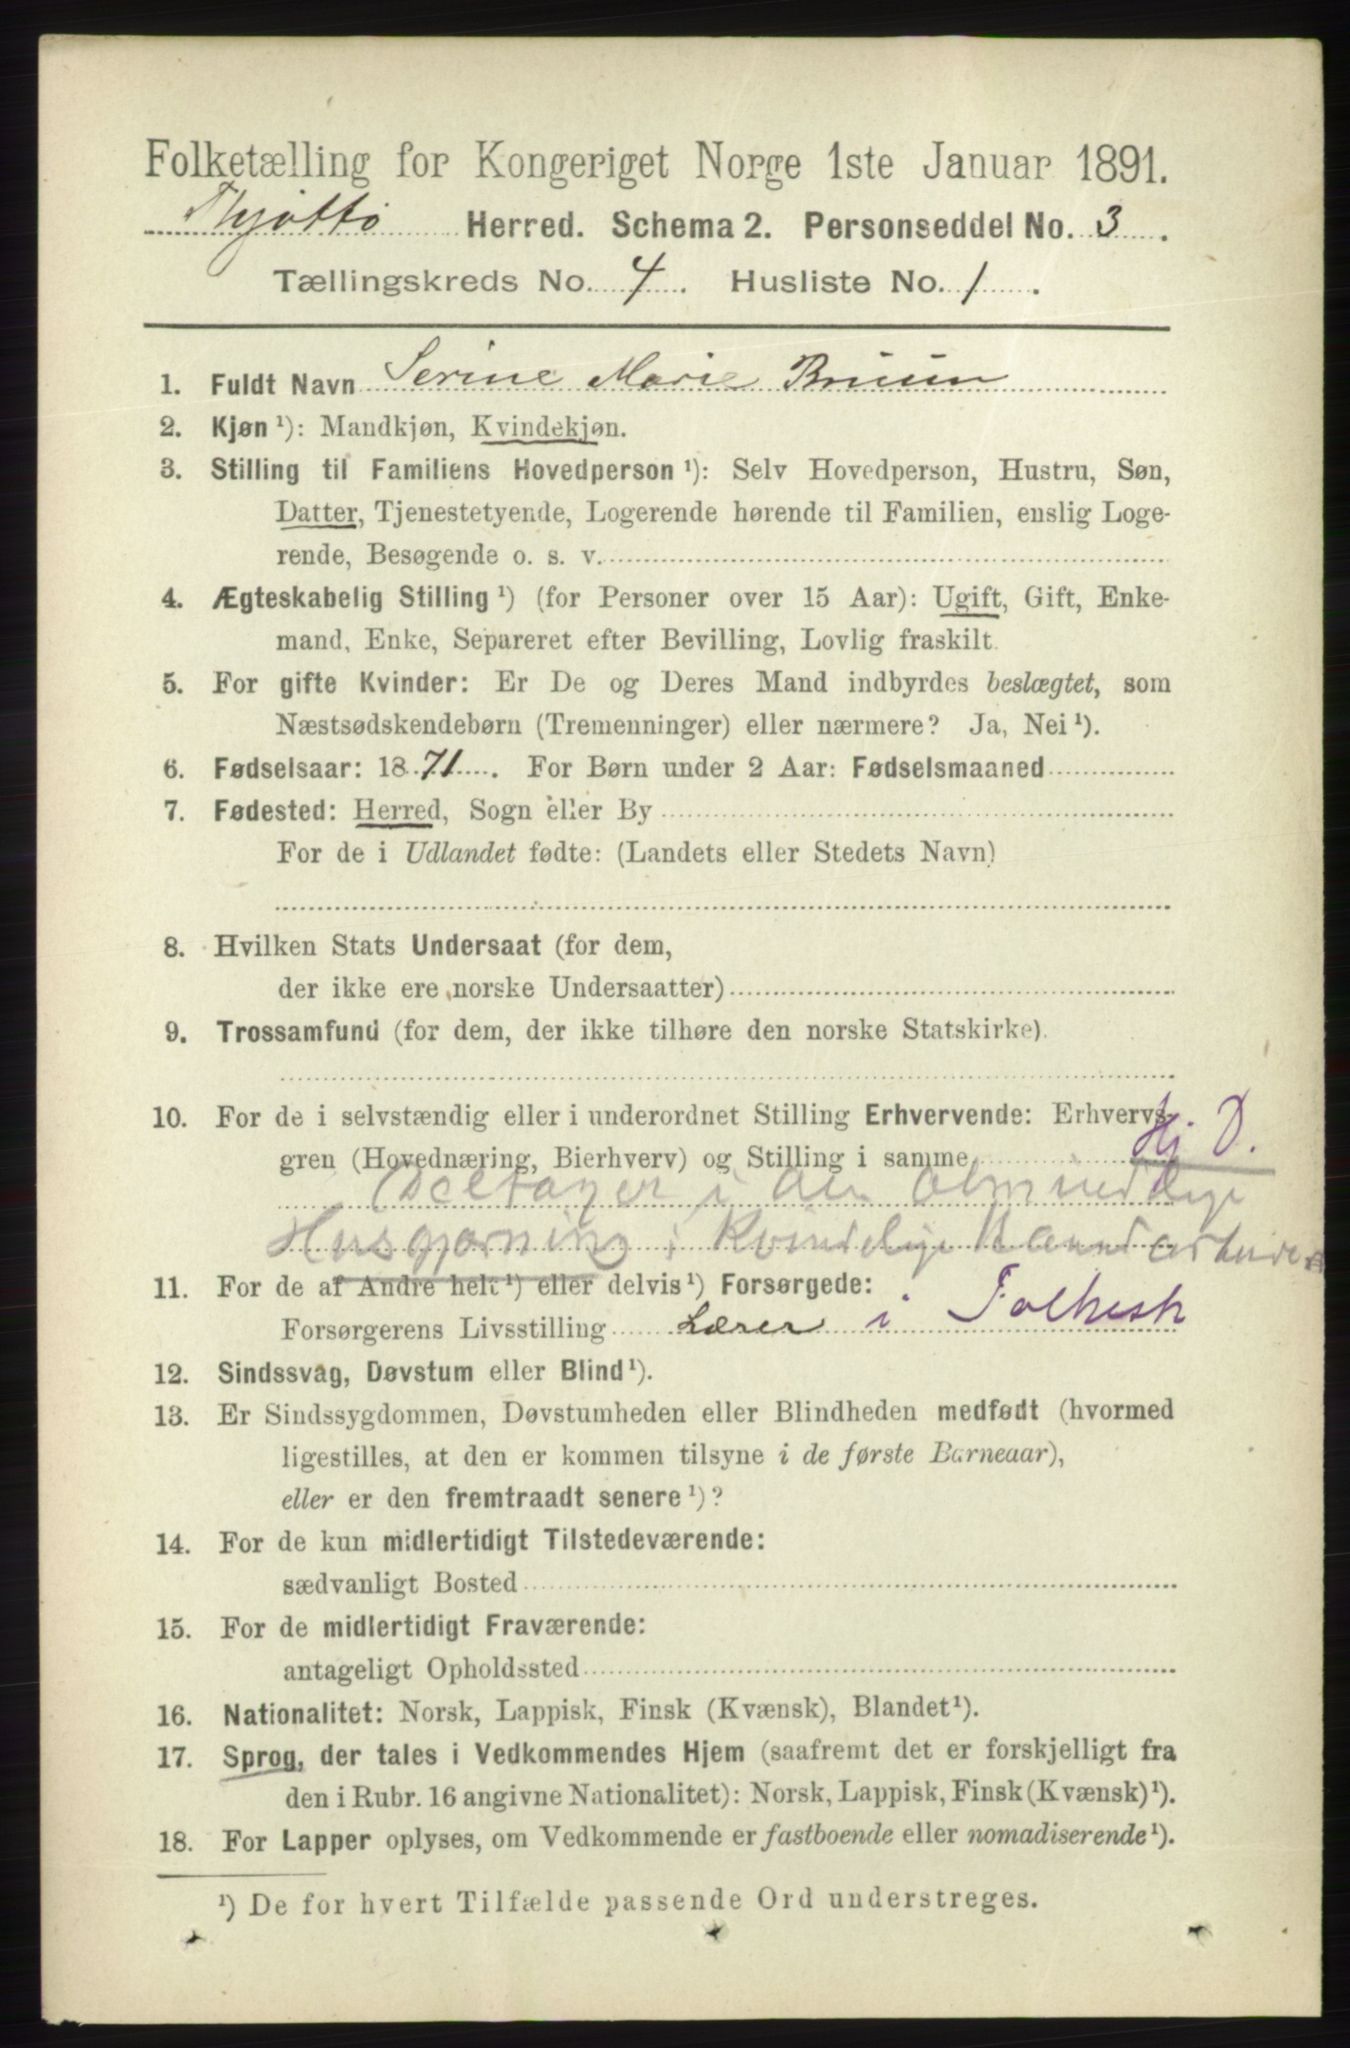 Folketælling for Kongeriget Norge 1ste Januar 1891.
Thjøttø Herred. Schema 2. Personseddel No. 3.
Tællingskreds No. 4. Husliste No. 1.
1. Fuldt Navn Serine Marie Bruun
2. Kjøn ¹): Mandkjøn, Kvindekjøn.
3. Stilling til Familiens Hovedperson ¹): Selv Hovedperson, Hustru, Søn,
Datter, Tjenestetyende, Logerende hørende til Familien, enslig Loge-
rende, Besøgende o. s. v.
4. Ægteskabelig Stilling ¹) (for Personer over 15 Aar): Ugift, Gift, Enke-
mand, Enke, Separeret efter Bevilling, Lovlig fraskilt.
5. For gifte Kvinder: Er De og Deres Mand indbyrdes beslægtet, som
Næstsødskendebørn (Tremenninger) eller nærmere? Ja, Nei ¹).
6. Fødselsaar: 1871. For Børn under 2 Aar: Fødselsmaaned
7. Fødested: Herred, Sogn eller By
For de i Udlandet fødte: (Landets eller Stedets Navn)
8. Hvilken Stats Undersaat (for dem,
der ikke ere norske Undersaatter)
9. Trossamfund (for dem, der ikke tilhøre den norske Statskirke).
10. For de i selvstændig eller i underordnet Stilling Erhvervende: Erhvervs-
gren (Hovednæring, Bierhverv) og Stilling i samme Hj D.
Deltager i den almindelige
Husgjerning i Kvindelige
11. For de af Andre helt ¹) eller delvis ¹) Forsørgede:
Forsørgerens Livsstilling Lærer i Folkesk
12. Sindssvag, Døvstum eller Blind ¹).
13. Er Sindssygdommen, Døvstumheden eller Blindheden medfødt (hvormed
ligestilles, at den er kommen tilsyne i de første Barneaar),
eller er den fremtraadt senere ¹)?
14. For de kun midlertidigt Tilstedeværende:
sædvanligt Bosted
15. For de midlertidigt Fraværende:
antageligt Opholdssted
16. Nationalitet: Norsk, Lappisk, Finsk (Kvænsk), Blandet ¹).
17. Sprog, der tales i Vedkommendes Hjem (saafremt det er forskjelligt fra
den i Rubr. 16 angivne Nationalitet): Norsk, Lappisk, Finsk (Kvænsk) ¹).
18. For Lapper oplyses, om Vedkommende er fastboende eller nomadiserende ¹).
¹) De for hvert Tilfælde passende Ord understreges.